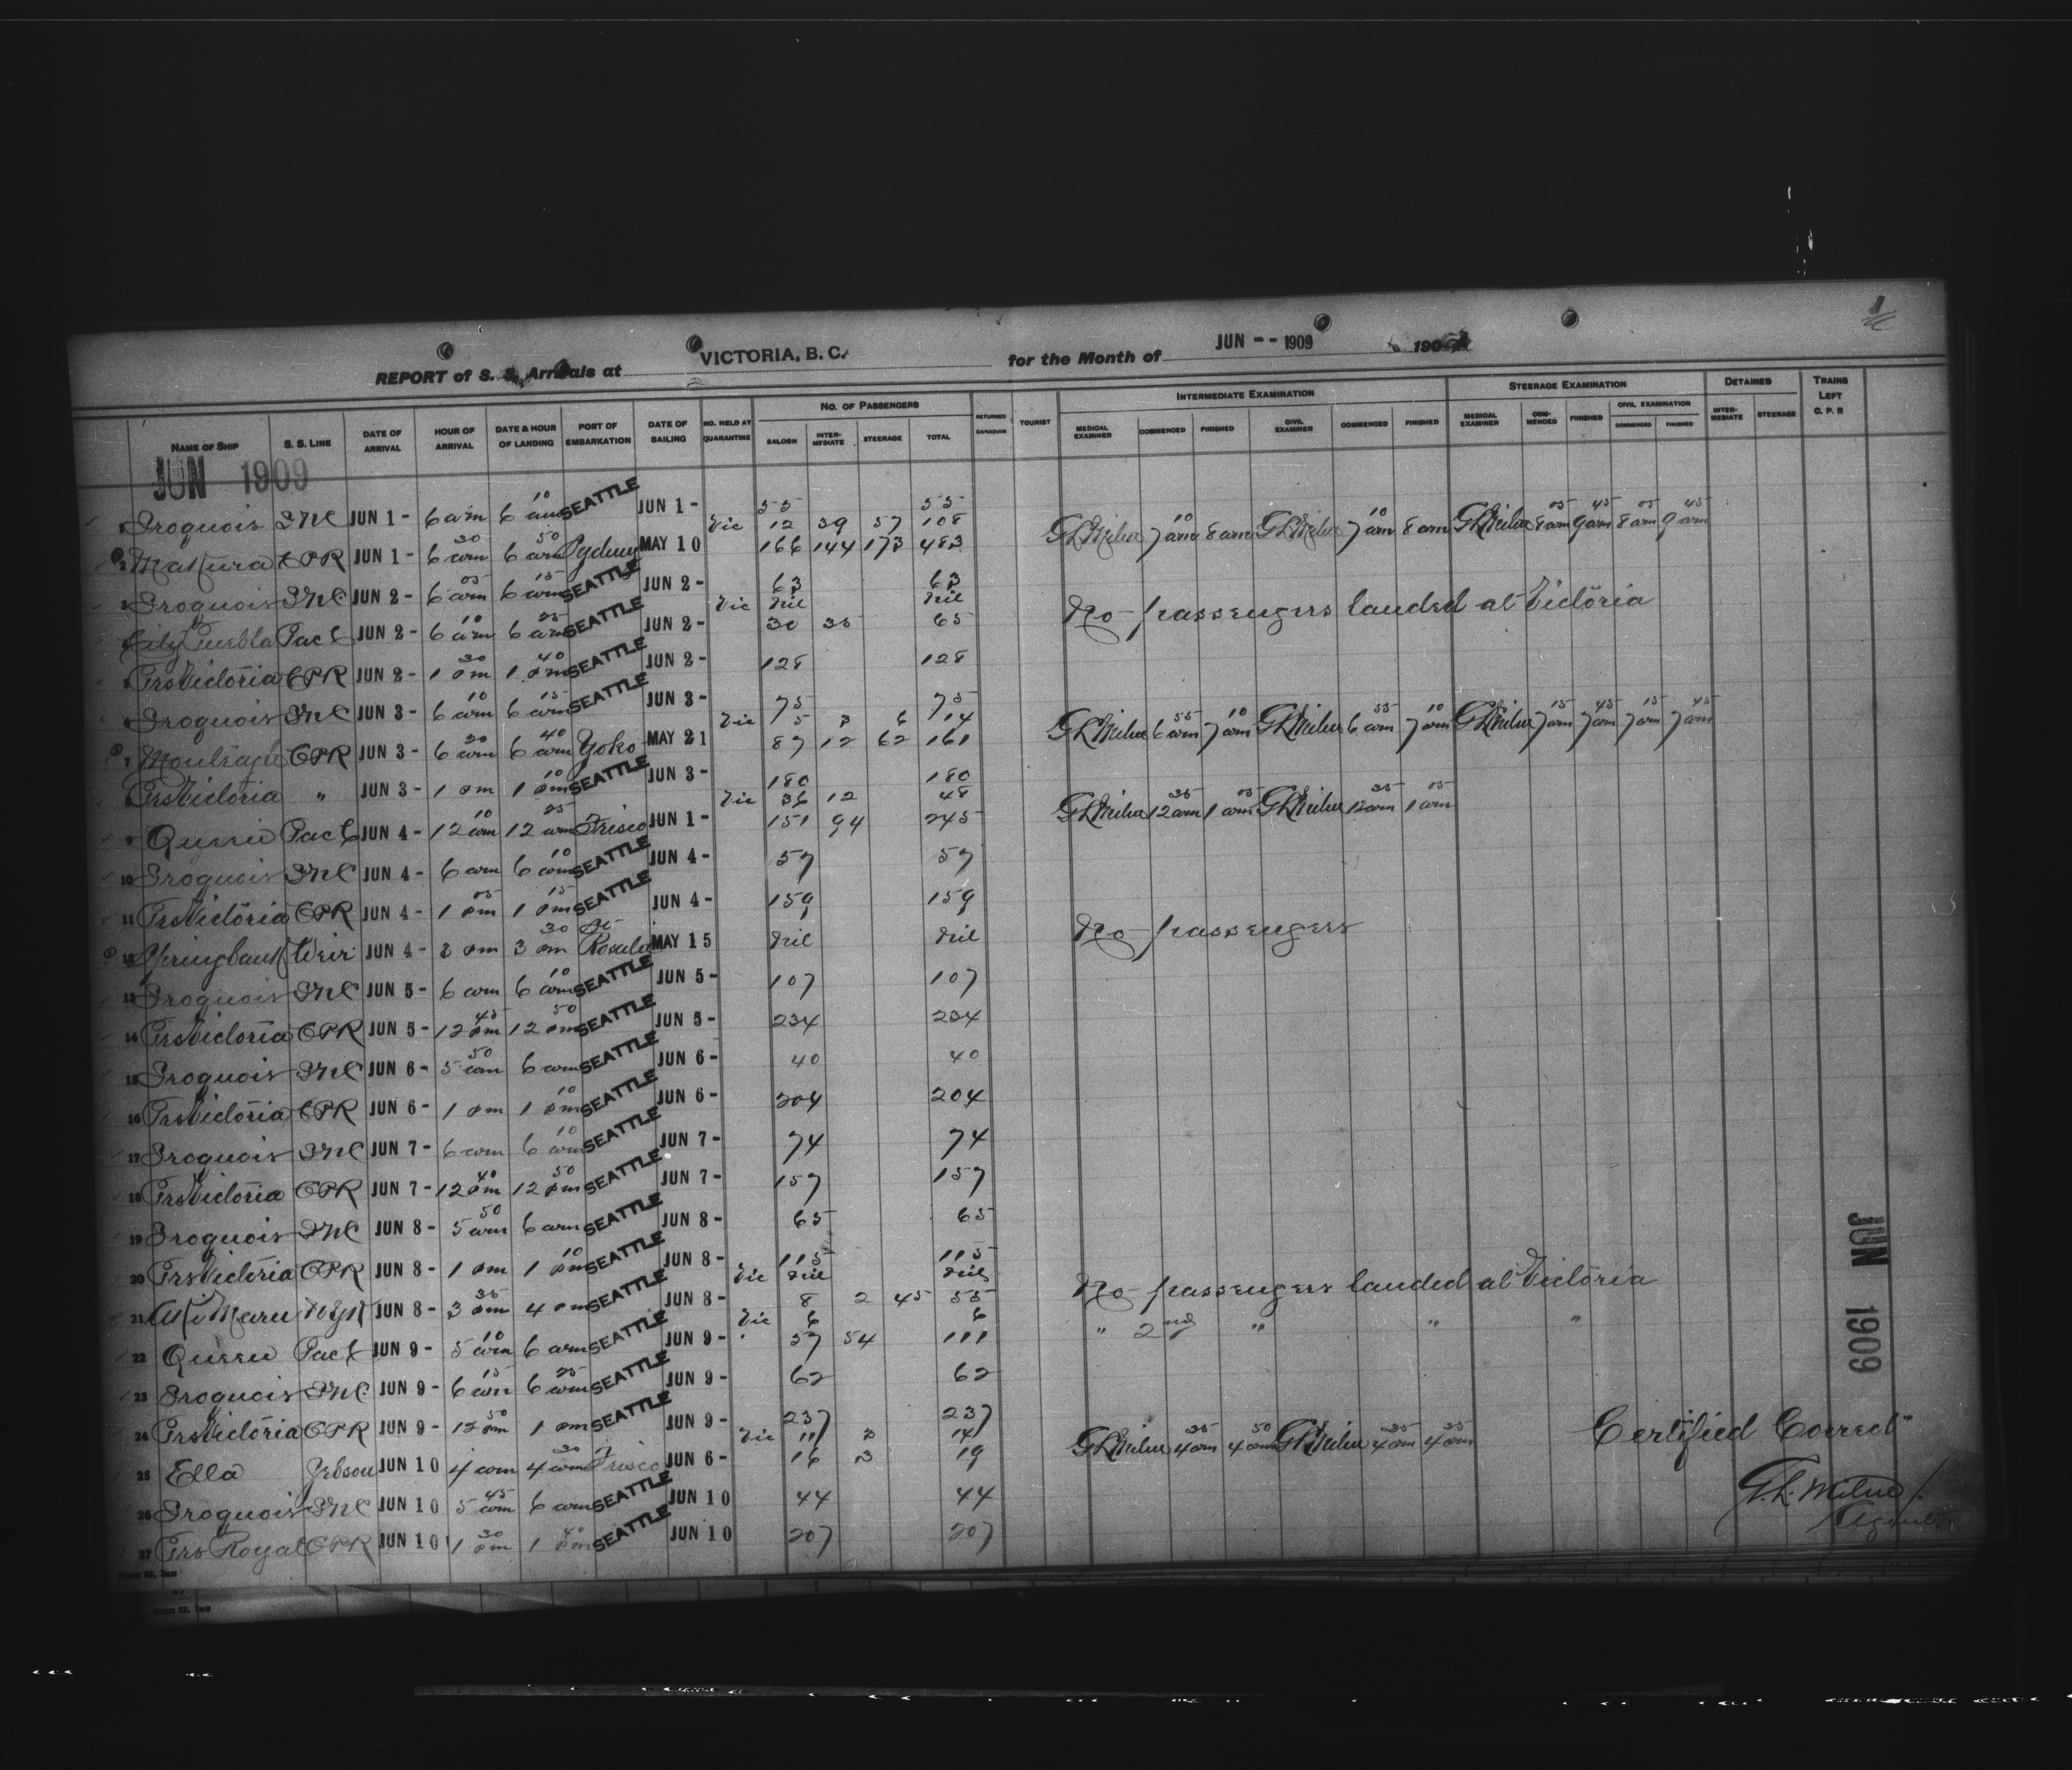 1
REPORT of S. S. Arrivals at VICTORIA, B. C. for the Month of JUN -- 1909 190
NAME OF SHIP S. S. LINE DATE OF ARRIVAL HOUR OF ARRIVAL DATE & HOUR OF LANDING PORT OF EMBARKATION DATE OF SAILING NO. HELD AT QUARANTINE NO. OF PASSENGERS SALOON INTERMEDIATE STEERAGE TOTAL RETURNED CANADIAN TOURIST INTERMEDIATE EXAMINATION MEDICAL EXAMINER COMMENCED FINISHED CIVIL EXAMINER COMMENCED FINISHED STEERAGE EXAMINATION MEDICAL EXAMINER COMMENCED FINISHED CIVIL EXAMINATION COMMENCED FINISHED DETAINED INTERMEDIATE STEERAGE TRAINS LEFT C. P. R
JUN 1909
1 Iroquois INC JUN 1- 6 am 6 10 am SEATTLE JUN 1- 55 55
Vic 12 39 57 108 GLMilne 7 10 am 8 am GLMilne 7 10 am 8 am GLMilne 8 05 am 9 45 am 8 05 am 9 45 am
2 Makura CPR JUN 1- 6 30 am 6 50 am Sydney MAY 10 166 144 173 483
3 Iroquois INC JUN 2- 6 05 am 6 15 am SEATTLE JUN 2- 63 63
Vic Nil Nil No passengers landed at Victoria
4 City Puebla Pac C JUN 2- 6 10 am 6 25 am SEATTLE JUN 2- 30 35 65
5 PrsVictoria CPR JUN 2- 1 30 pm 1 40 pm SEATTLE JUN 2- 128 128
6 Iroquois INC JUN 3- 6 10 am 6 15 am SEATTLE JUN 3- 75 75
Vic 5 3 6 14 GLMilne 6 55 am 7 10 am GLMilne 6 55 am 7 10 am GLMilne 7 15 am 7 45 am 7 15 am 7 45 am
7 Monteagle CPR JUN 3- 6 20 am 6 40 am Yoko MAY 21 87 12 62 161
8 PrsVictoria " JUN 3- 1 pm 1 10 pm SEATTLE JUN 3- 180 180
Vic 36 12 48 GLMilne 12 35 am 1 05 am GLMilne 12 35 am 1 05 am
9 Queen Pac C JUN 4- 12 10 am 12 25 am Frisco JUN 1- 151 94 245
10 Iroquois INC JUN 4- 6 am 6 10 am SEATTLE JUN 4- 57 57
11 PrsVictoria CPR JUN 4- 1 05 pm 1 15 pm SEATTLE JUN 4- 159 159
12 Springbank Weir JUN 4- 3 pm 3 30 pm MAY 15 Nil Nil No passengers
13 Iroquois INC JUN 5- 6 am 6 10 am SEATTLE JUN 5- 107 107
14 PrsVictoria CPR JUN 5- 12 45 pm 12 50 pm SEATTLE JUN 5- 234 234
15 Iroquois INC JUN 6- 5 50 am 6 am SEATTLE JUN 6- 40 40
16 PrsVictoria CPR JUN 6- 1 pm 1 10 pm SEATTLE JUN 6- 204 204
17 Iroquois INC JUN 7- 6 am 6 10 am SEATTLE JUN 7- 74 74
18 PrsVictoria CPR JUN 7- 12 40 pm 12 50 pm SEATTLE JUN 7- 157 157
19 Iroquois INC JUN 8- 5 50 am 6 am SEATTLE JUN 8- 65 65
20 PrsVictoria CPR JUN 8- 1 pm 1 10 pm SEATTLE JUN 8- 115 115
Vic Nil Nil No passengers landed at Victoria
21 Aki Maru NYK JUN 8- 3 35 pm 4 pm SEATTLE JUN 8- 8 2 45 55
Vic 6 6 " 2nd " " "
22 Queen Pac C JUN 9- 5 10 am 6 am SEATTLE JUN 9- 57 54 111
23 Iroquois INC JUN 9- 6 15 am 6 25 am SEATTLE JUN 9- 62 62
24 PrsVictoria CPR JUN 9- 12 50 pm 1 pm SEATTLE JUN 9- 237 237
Vic 11 3 14 GLMilne 4 35 am 4 50 am GLMilne 4 35 am 4 35 am
25 Ella Jebson JUN 10 4 am 4 30 am Frisco JUN 6- 16 3 19
26 Iroquois INC JUN 10 5 45 am 6 am SEATTLE JUN 10 44 44
27 Prs Royal CPR JUN 10 1 30 pm 1 40 pm SEATTLE JUN 10 207 207
JUN 1909
Certified Correct
G.L. Milne
Agent